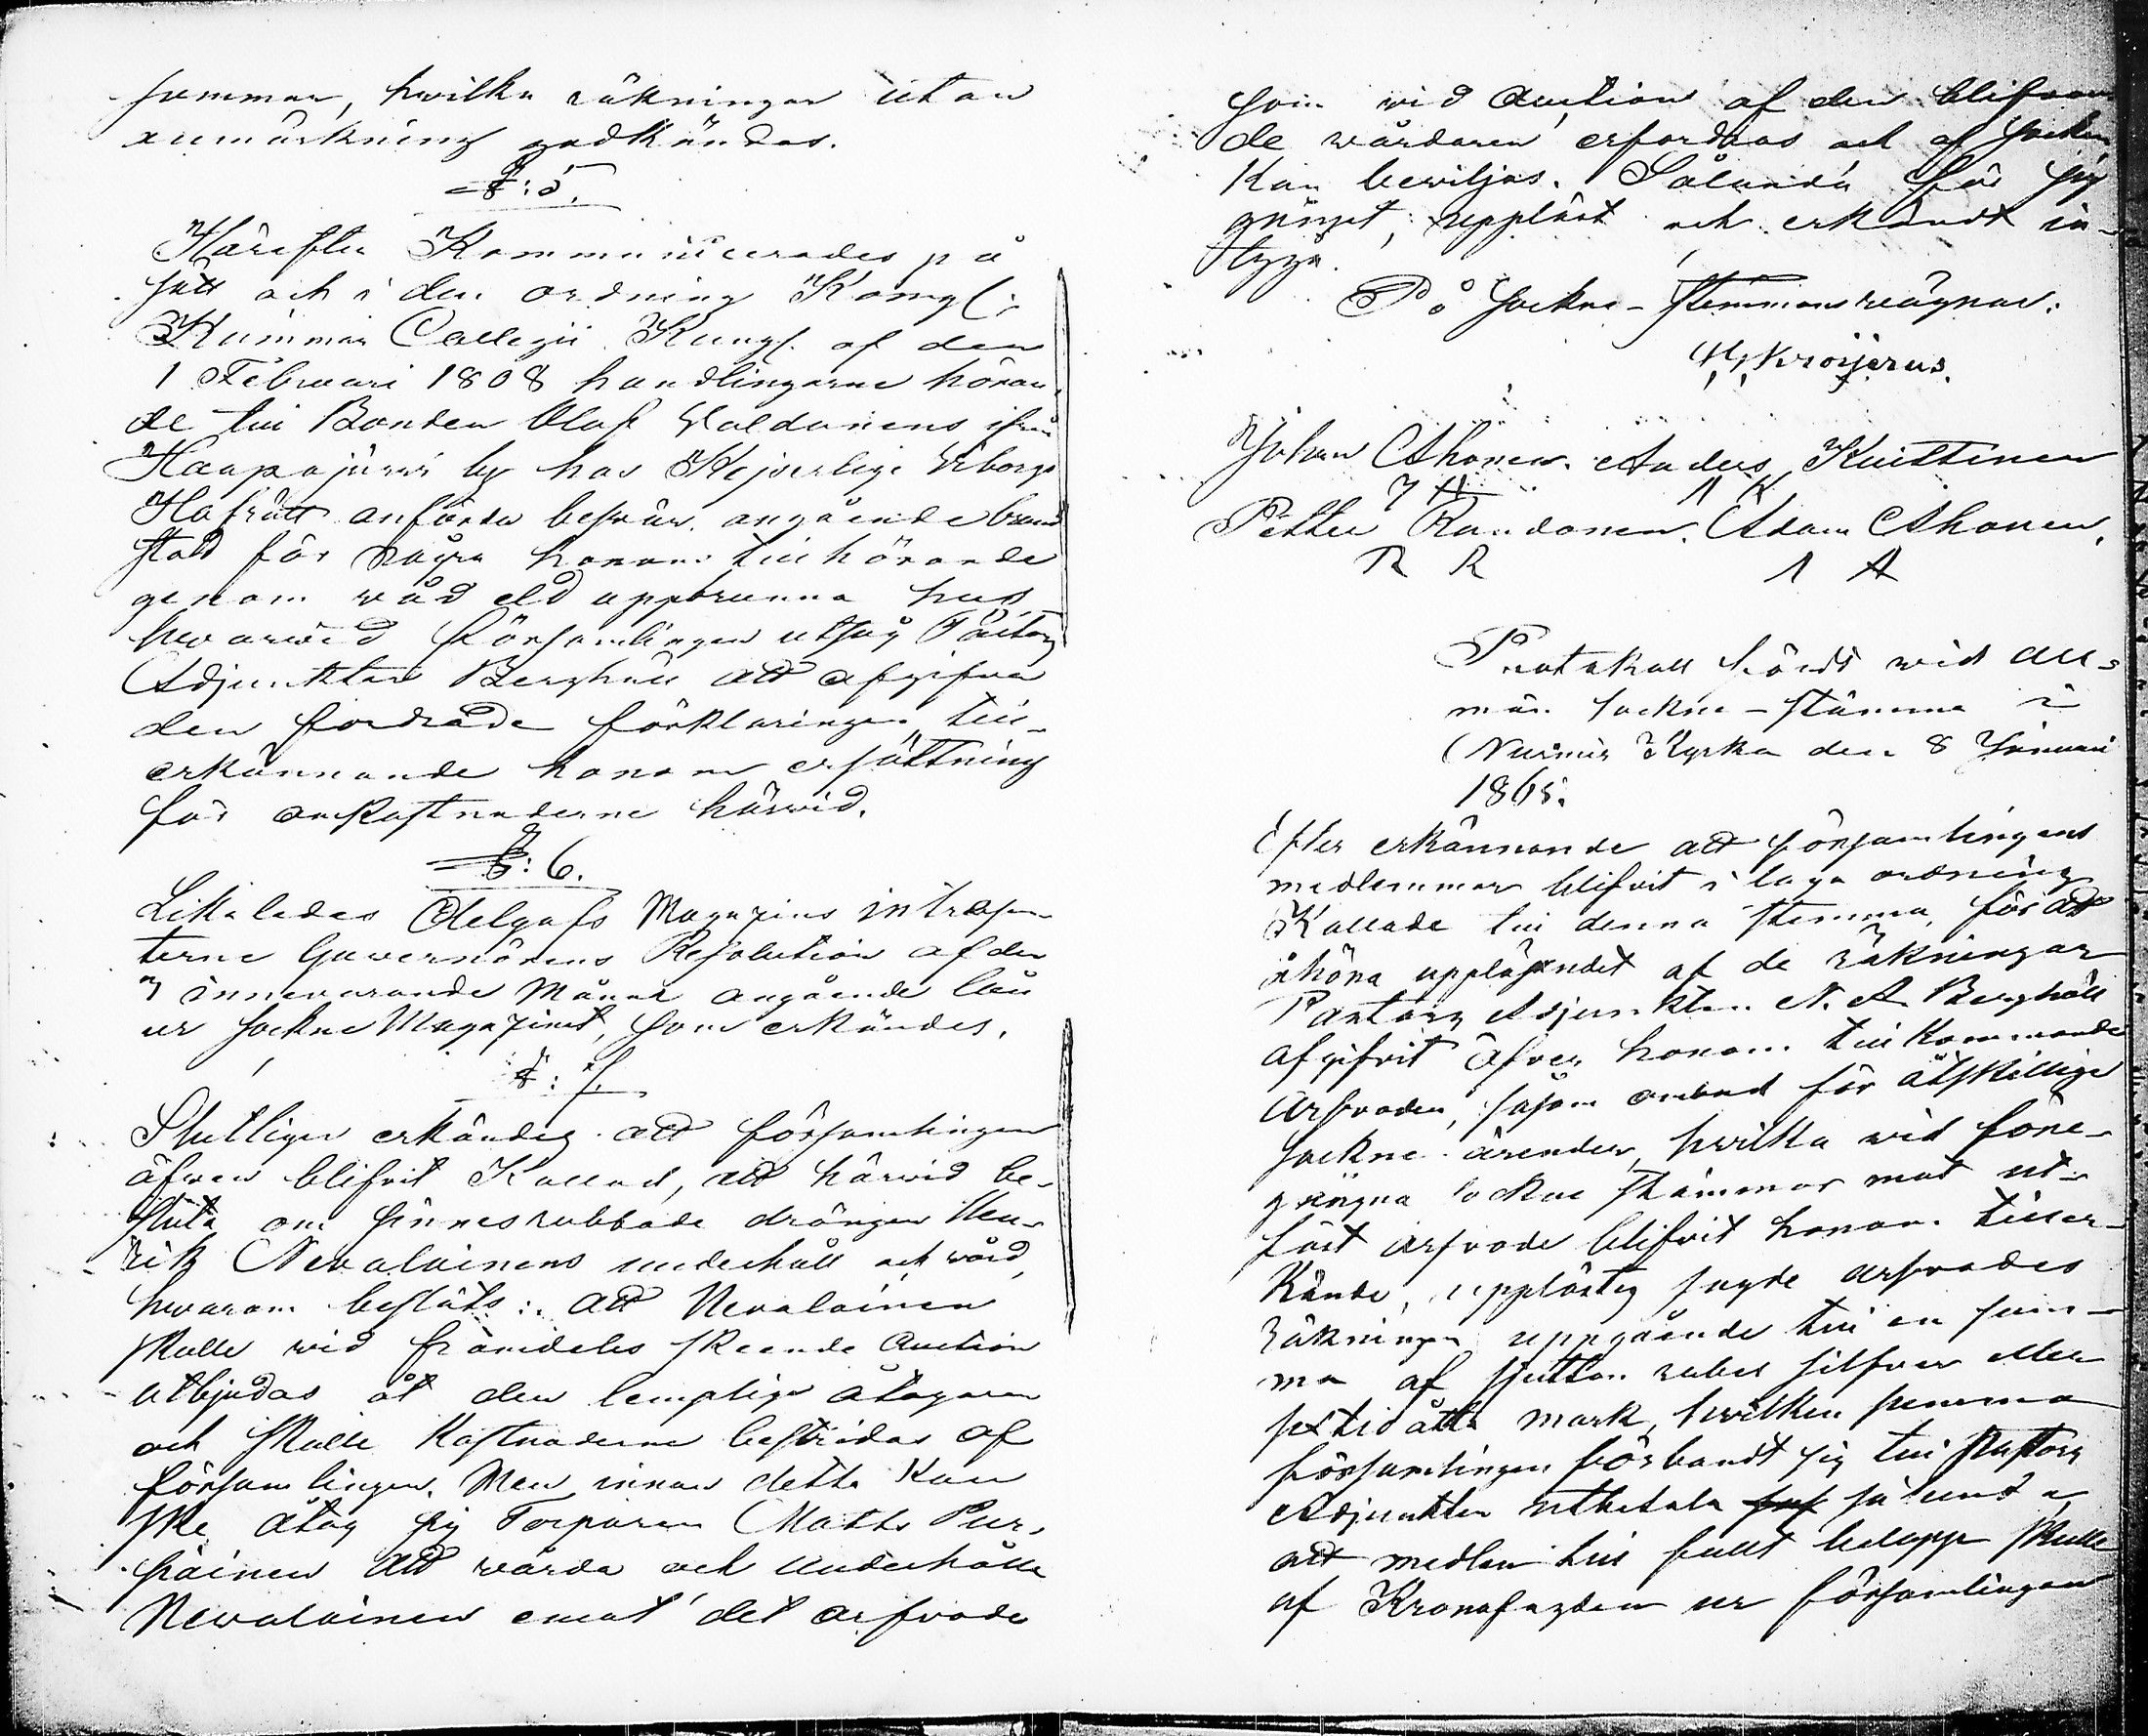 summor, hwilka räkningar utan
anmärkning godkändes.
§: 5.
Härefter Kommunicerades på
sätt och i den ordning Kongl:
Kammar Collegii Kungl. af den
1 Februari 1808 handlingarne höran-
de till Bonden Olof Waldanens ifrån
Haapajärvi by hos Kejserliga Wiborgs
Hofrätt anförda besvär angående brand
stod för några honom tillhörande
genom wåd eld uppbrunna hus
hwarwid Församlingen utsåg Pastors
Adjunkten Berghäll att afgifva
den fordrade förklaringen, till-
erkännande honom ersättning
för omkostnaderne härwid.
§: 6.
Likaledes delgafs Magazins intressen-
terne Guvernörens Resolution af den
7 innevarande Månad angående lån
ur Sockne Magazinet, som erkändes.
§: 7.
Slutligen erkändes att församlingen
äfwen blifvit Kallad, att härwid be-
sluta om sinnesrubbade drängen Hen-
rik Nevalainens underhåll och wård,
hwarom beslöts: att Nevalainen
skulle wid framdeles skeende Auction
utbjudas åt den lempliga åtagaren
och skulle Kostnaderne bestridas af
församlingen. Men innan detta kan
ske åtog sig Torparen Matts Pur-
siainen att wårda och underhålla
Nevalainen emot det arfvode
som wid Auction af den blifvan-
de wårdaren erfordras och af Socken
kan beviljas. Sålunda för sig
gånget, uppläst och erkändt in-
tyga.
På Sockne-Stemmans wägnar:
Kroijerus.
Johan Ahonen. Anders Kuittinen
I A A K
Petter Randonen. Adam Ahonen.
R R A A
Protokoll fördt wid all-
män Sockne-stämma i
Nurmis Kyrka den 8 Januari
1865.
Efter erkännande att församlingens
medlemmar blifvit i laga ordning
Kallade till denna stemma, för att
åhöra uppläsandet af de räkningar
Pastors Adjunkten N. A. Berghäll
afgifvit öfver honom tillkommande
Arfvoden, såsom ombud för åtskilliga
Sockne ärender, hwilka wid före-
gångna Sockne stämmor mot ut-
fäst arfvode blifvit honom tiller-
kände, upplästes sagde arfvodes
räkningar uppgående till en sum-
ma af sjutton rubel silfver eller
sextio åtta mark, hwilken summa
församlingen förbandt sig till Pastors
Adjunkten utbetala sålunda
att medlen till fullt belopp skulle
af Kronofogden ur församlingens